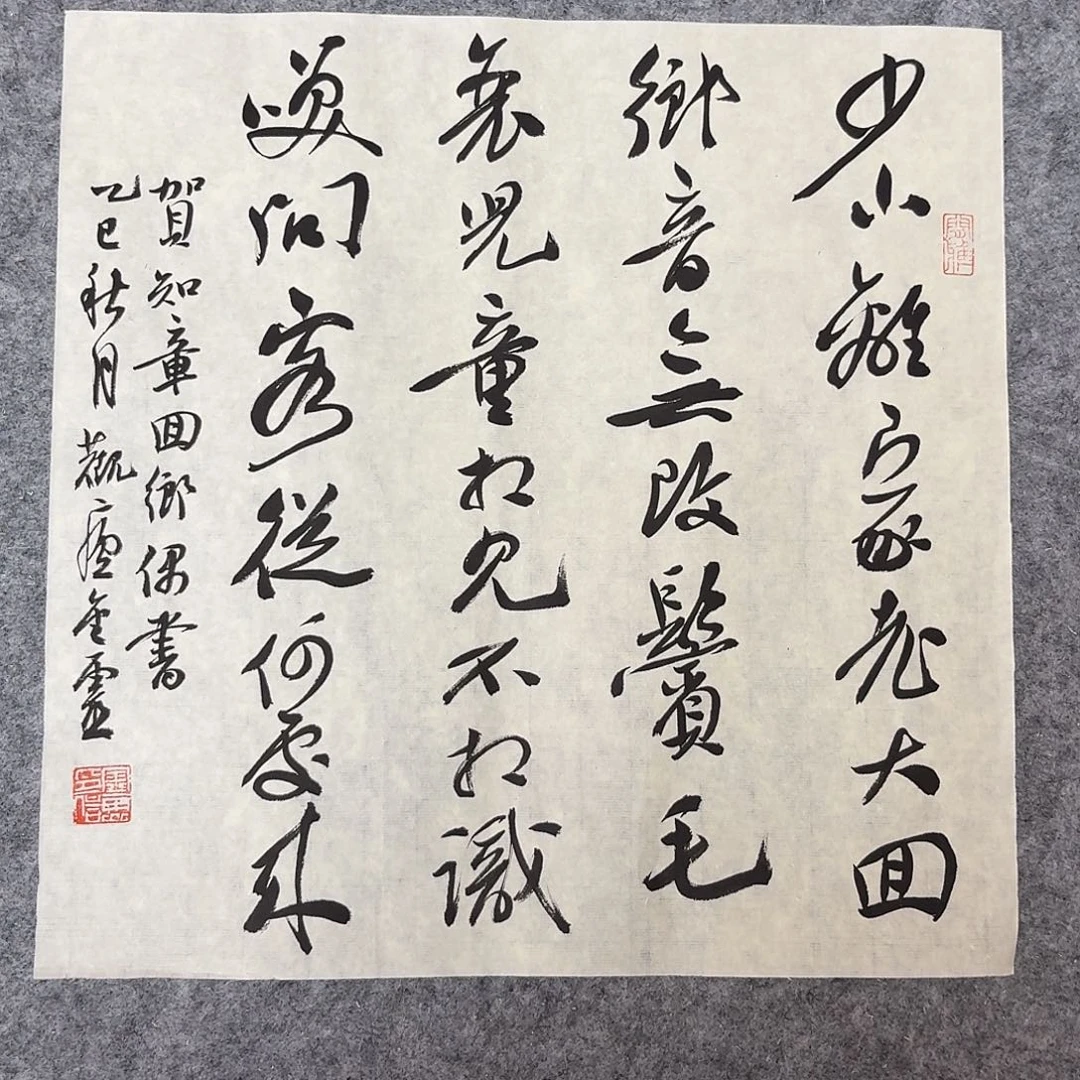 少小離家老大囬
鄉音無改鬢毛
衰兒童相見不相識
咲問客從何處來
賀知章囬鄉偶書
乙巳秋月觀廬金靈